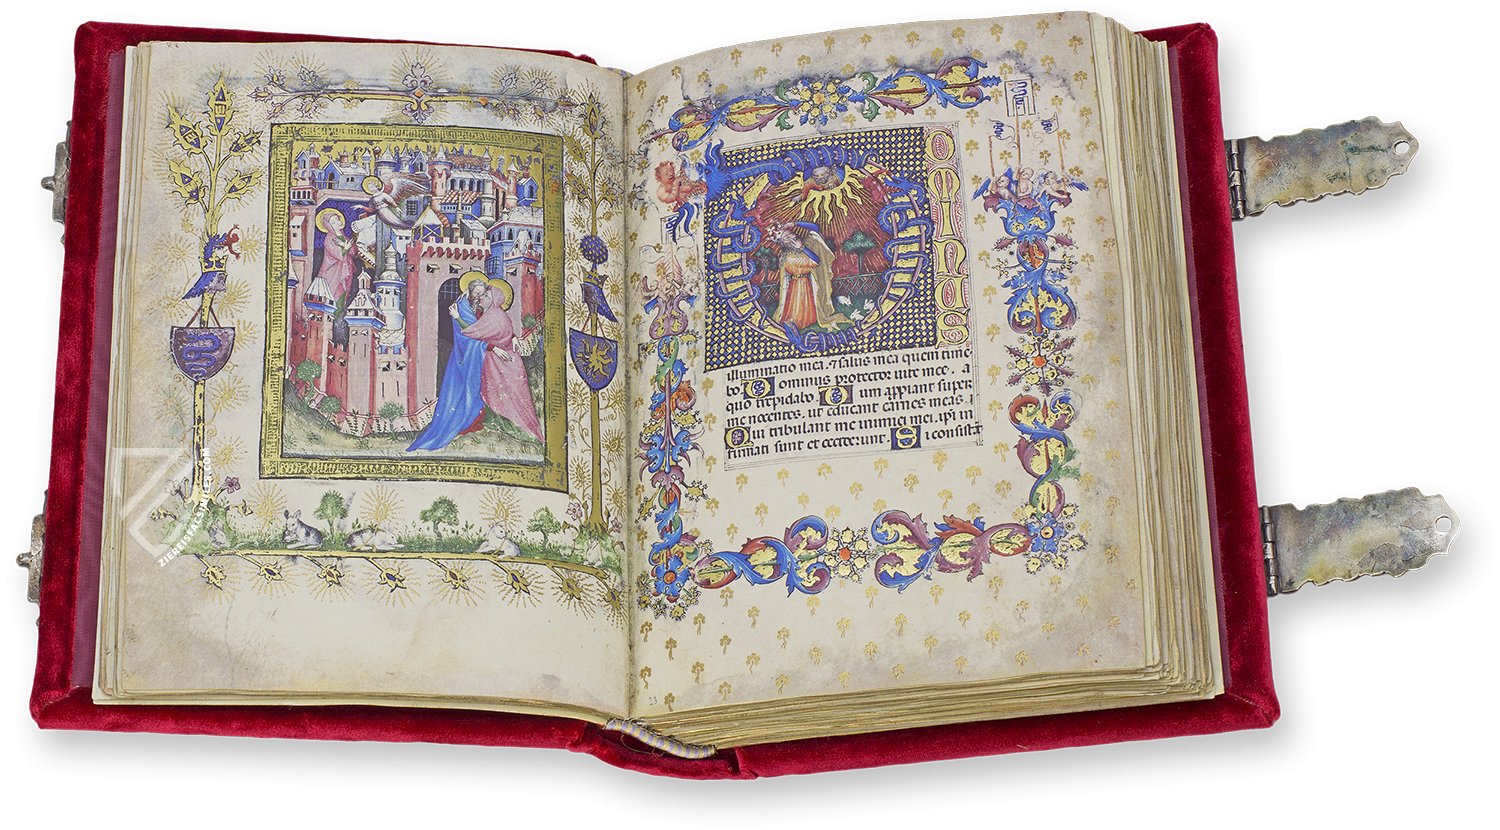 OMINUS
illuminatio mea. et salus mea quem time
bo D ominus protector uite mee. a
quo trepidabo D um appiant super
me nocentes. ut edant carnes meas.
Qui tribulant me inimici mei. ipsi in
firmati sunt et ceciderunt. Si consist
23
ZIERESKOPIEREN.COM